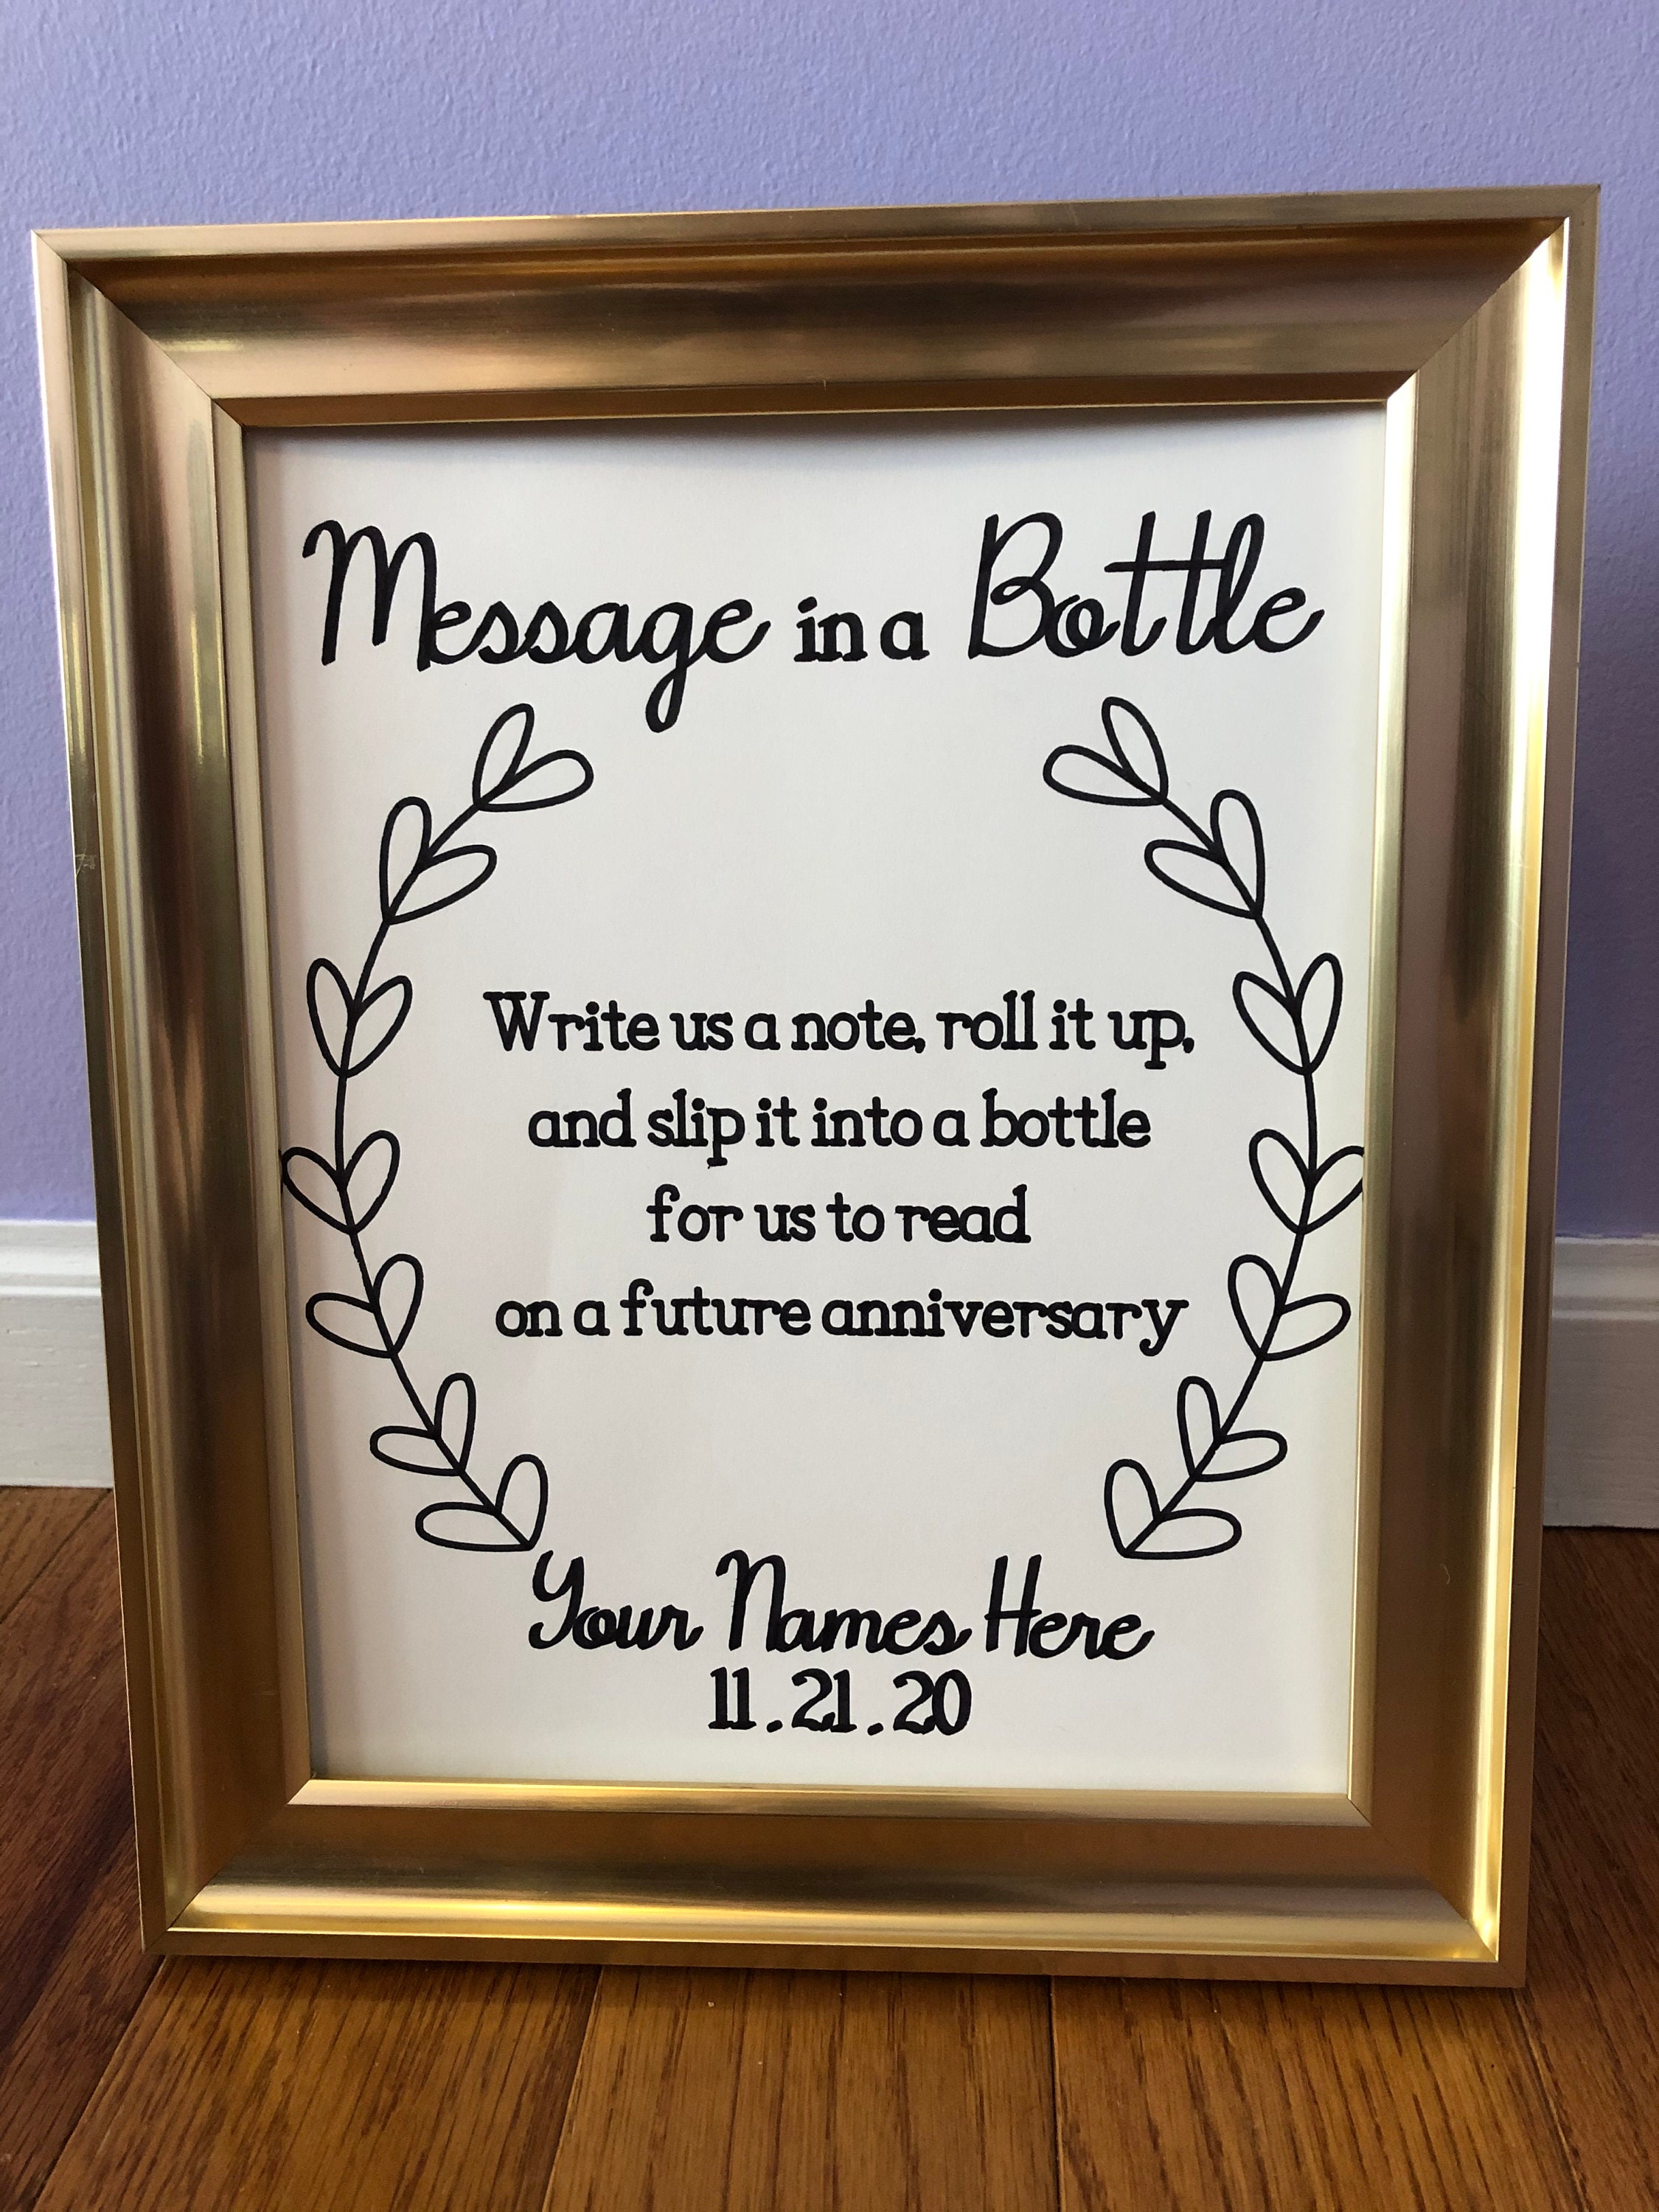 Message in a Bottle
Write us a note, roll it up,
and slip it into a bottle
for us to read
on a future anniversary
Your Names Here
11.21.20